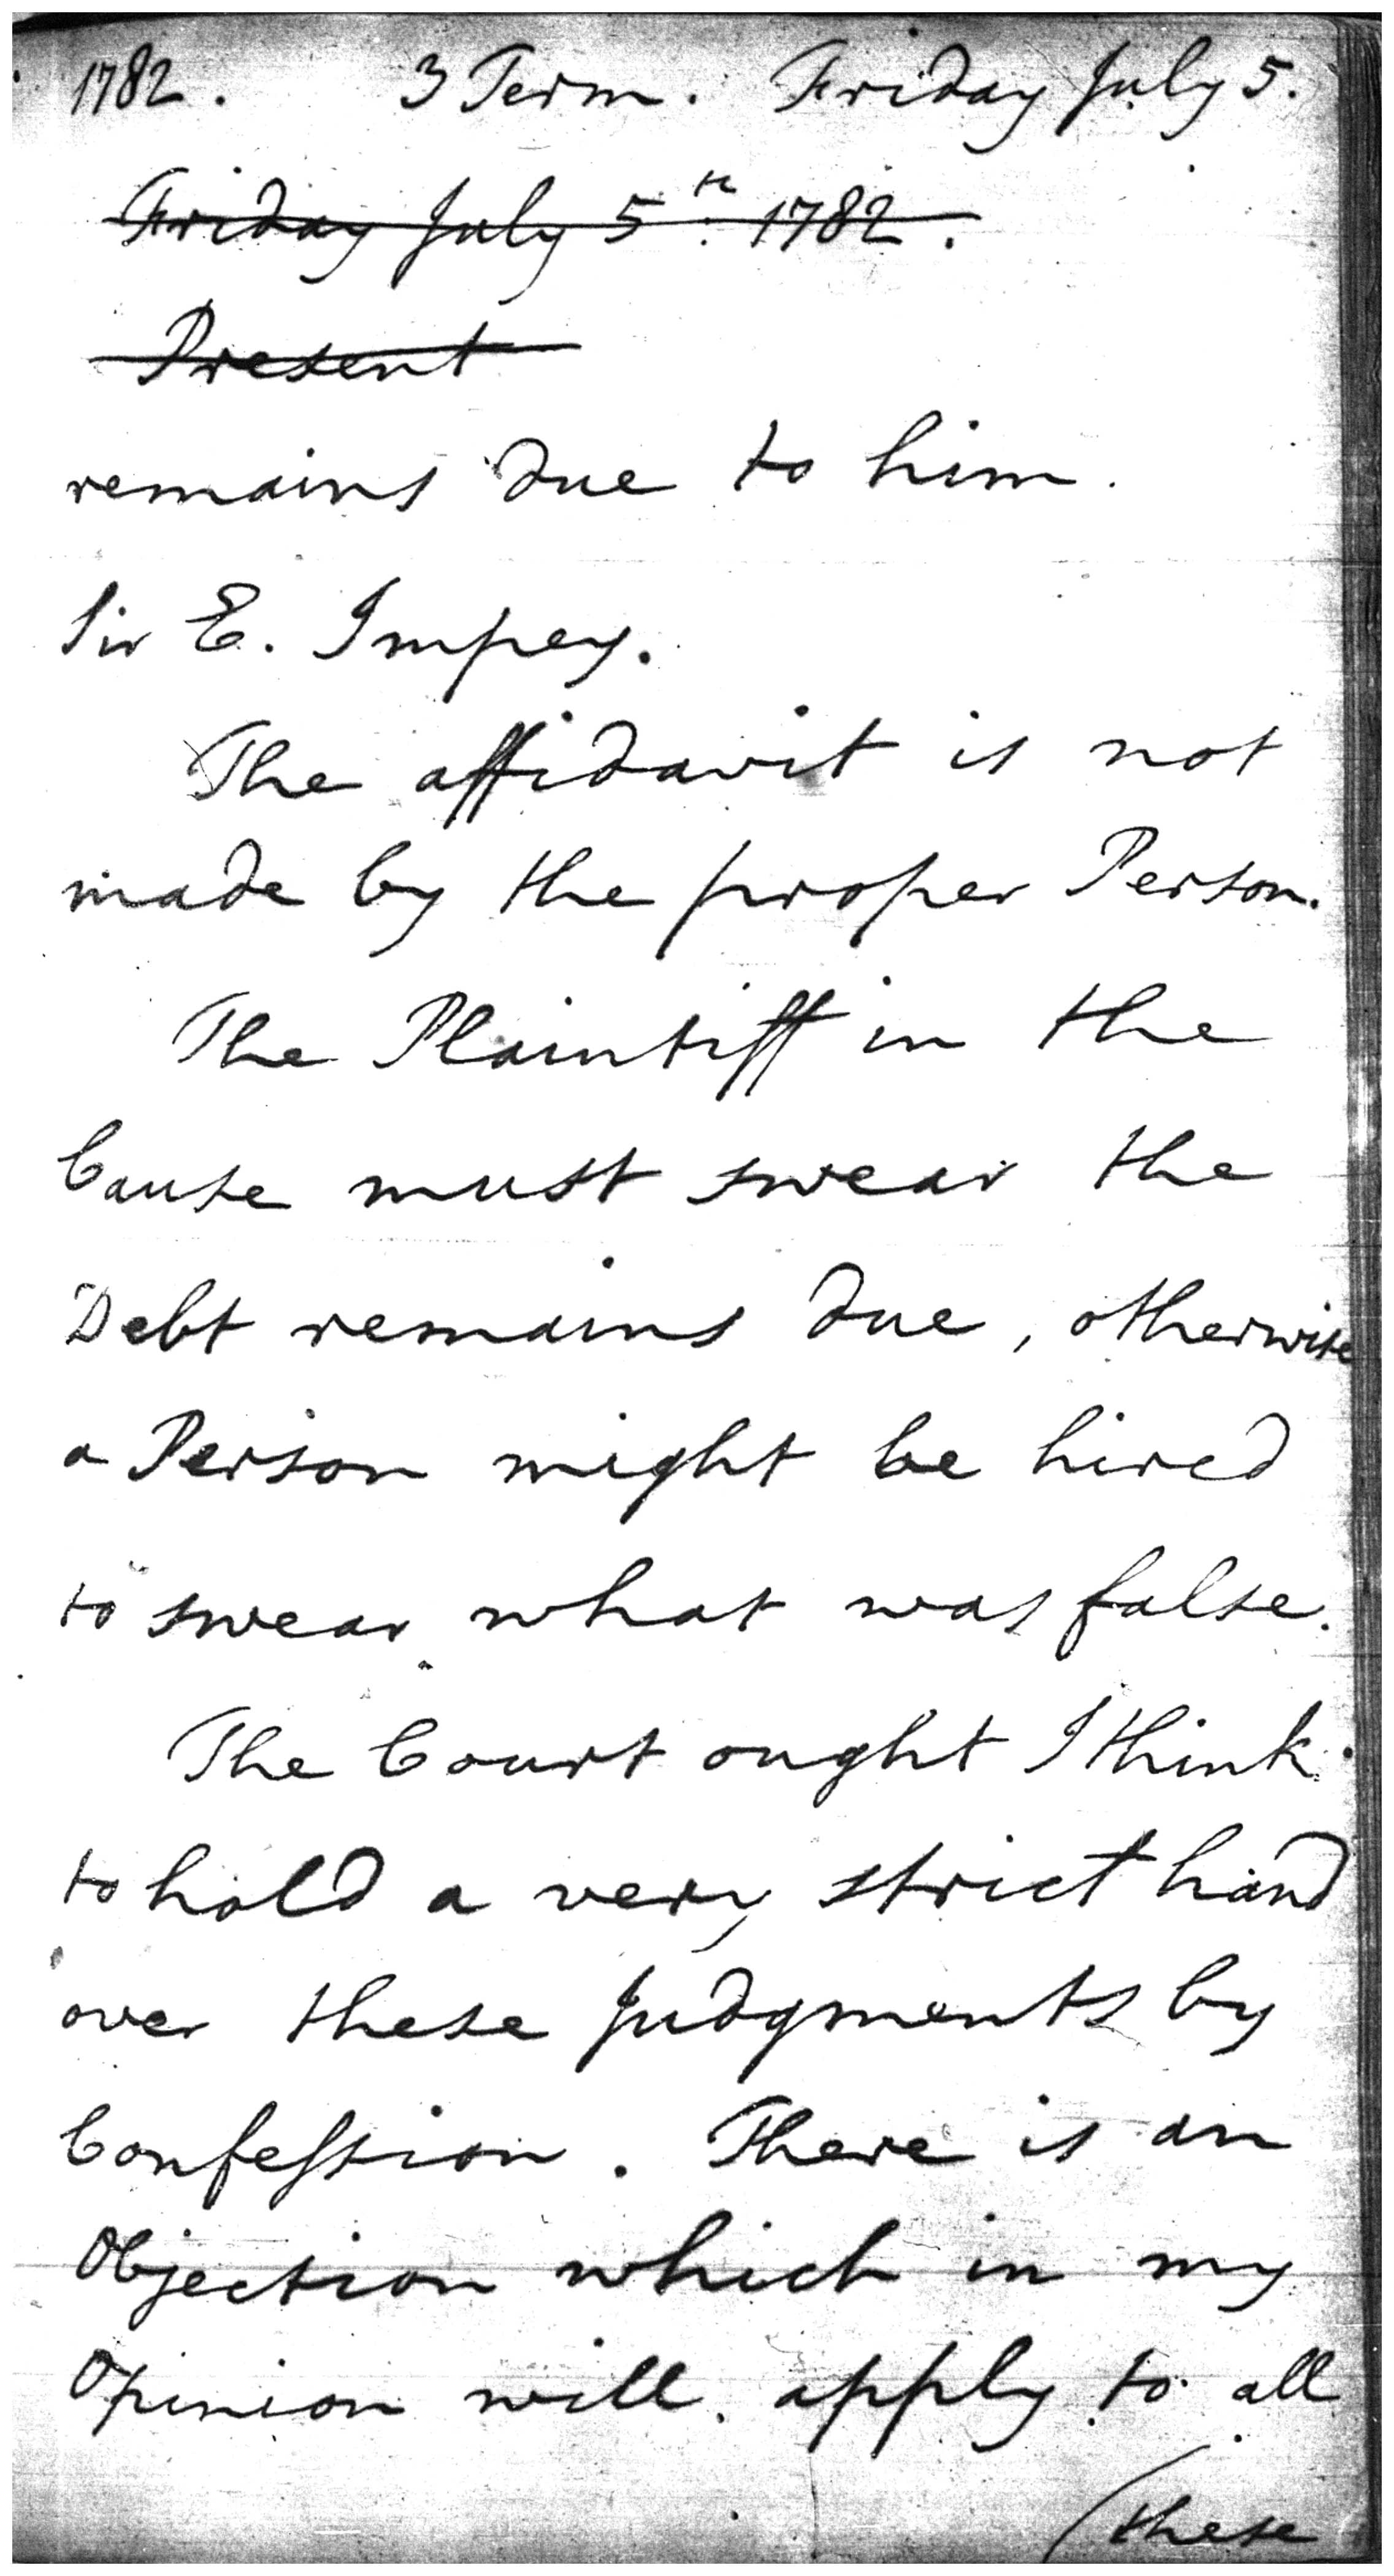 1782. 3 Term. Friday July 5.
Friday July 5th. 1782.
Present
remains due to him.
Sir E. Impey.
The affidavit is not
made by the proper Person.
The Plaintiff in the
Cause must swear the
Debt remains due, otherwise
a Person might be hired
to swear what was false.
The Court ought I think
to hold a very strict hand
over these Judgments by
Confeſsion. There is an
Objection which in my
Opinion will apply to all
(these